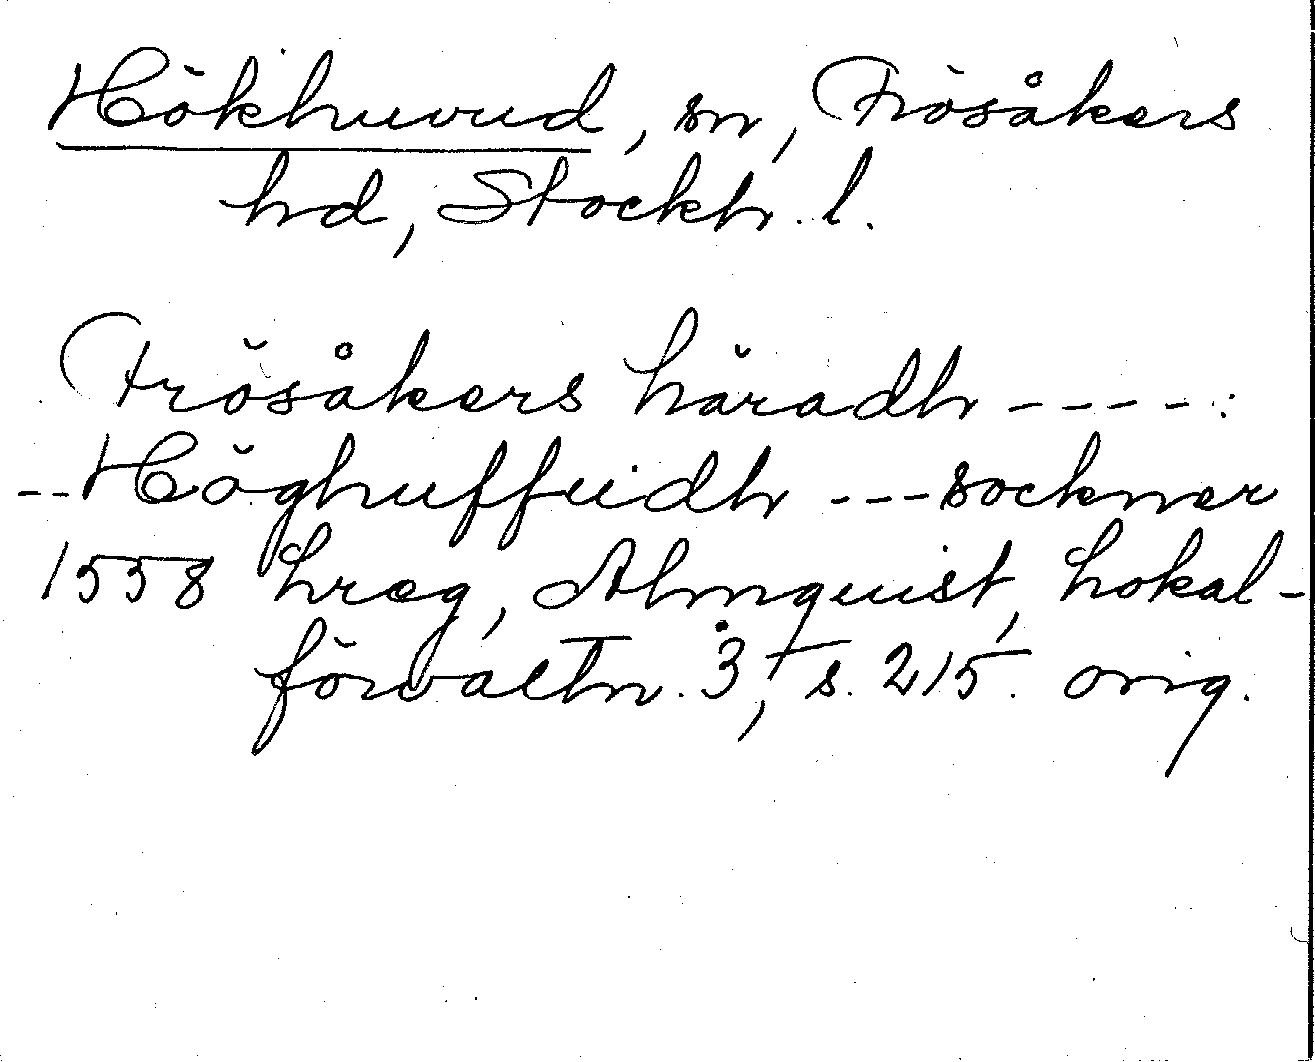 Hökhuvud, sn, Frösåkers
hd, Stockh. l.
Frösåkers häradh - - - - -:
--Höghuffuidh ---sockner
1558 hreg, Almquist, Lokal-
förvaltn. 3, s. 215. orig.